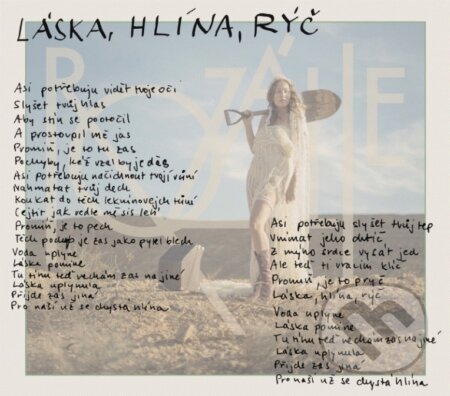 LÁSKA, HLÍNA, RÝČ
ROZÁLIE
Asi potřebuju vidět tvoje oči
Slyšet tvůj hlas
Aby stín se pootočil
A prostoupil mě jas
Promiň, je to tu zas
Pochyby, kéž vzal by je ďas
Asi potřebuju načichnout tvojí vůní
Nahmatat tvůj dech
Koukat do těch leknínových tůní
Cejtit, jak vedle mě sis leh
Promiň, je to pech
Těch pochyb je zas jako pytel blech
Voda uplyne
Láska pomine
Tu tíhu teď nechám zas na jiné
Láska uplynula
Přijde zas jiná
Pro naši už se chystá hlína
Asi potřebuju slyšet tvůj tep
Vnímat jeho
Z mýho srdce vysát jed
Ale teď ti vracím klíč
Promiň, je to pryč
Láska, hlína, rýč
Voda uplyne
Láska pomine
Tu tíhu teď nechám zas na jiné
Láska uplynula
Přijde zas jiná
Pro naši už se chystá hlína